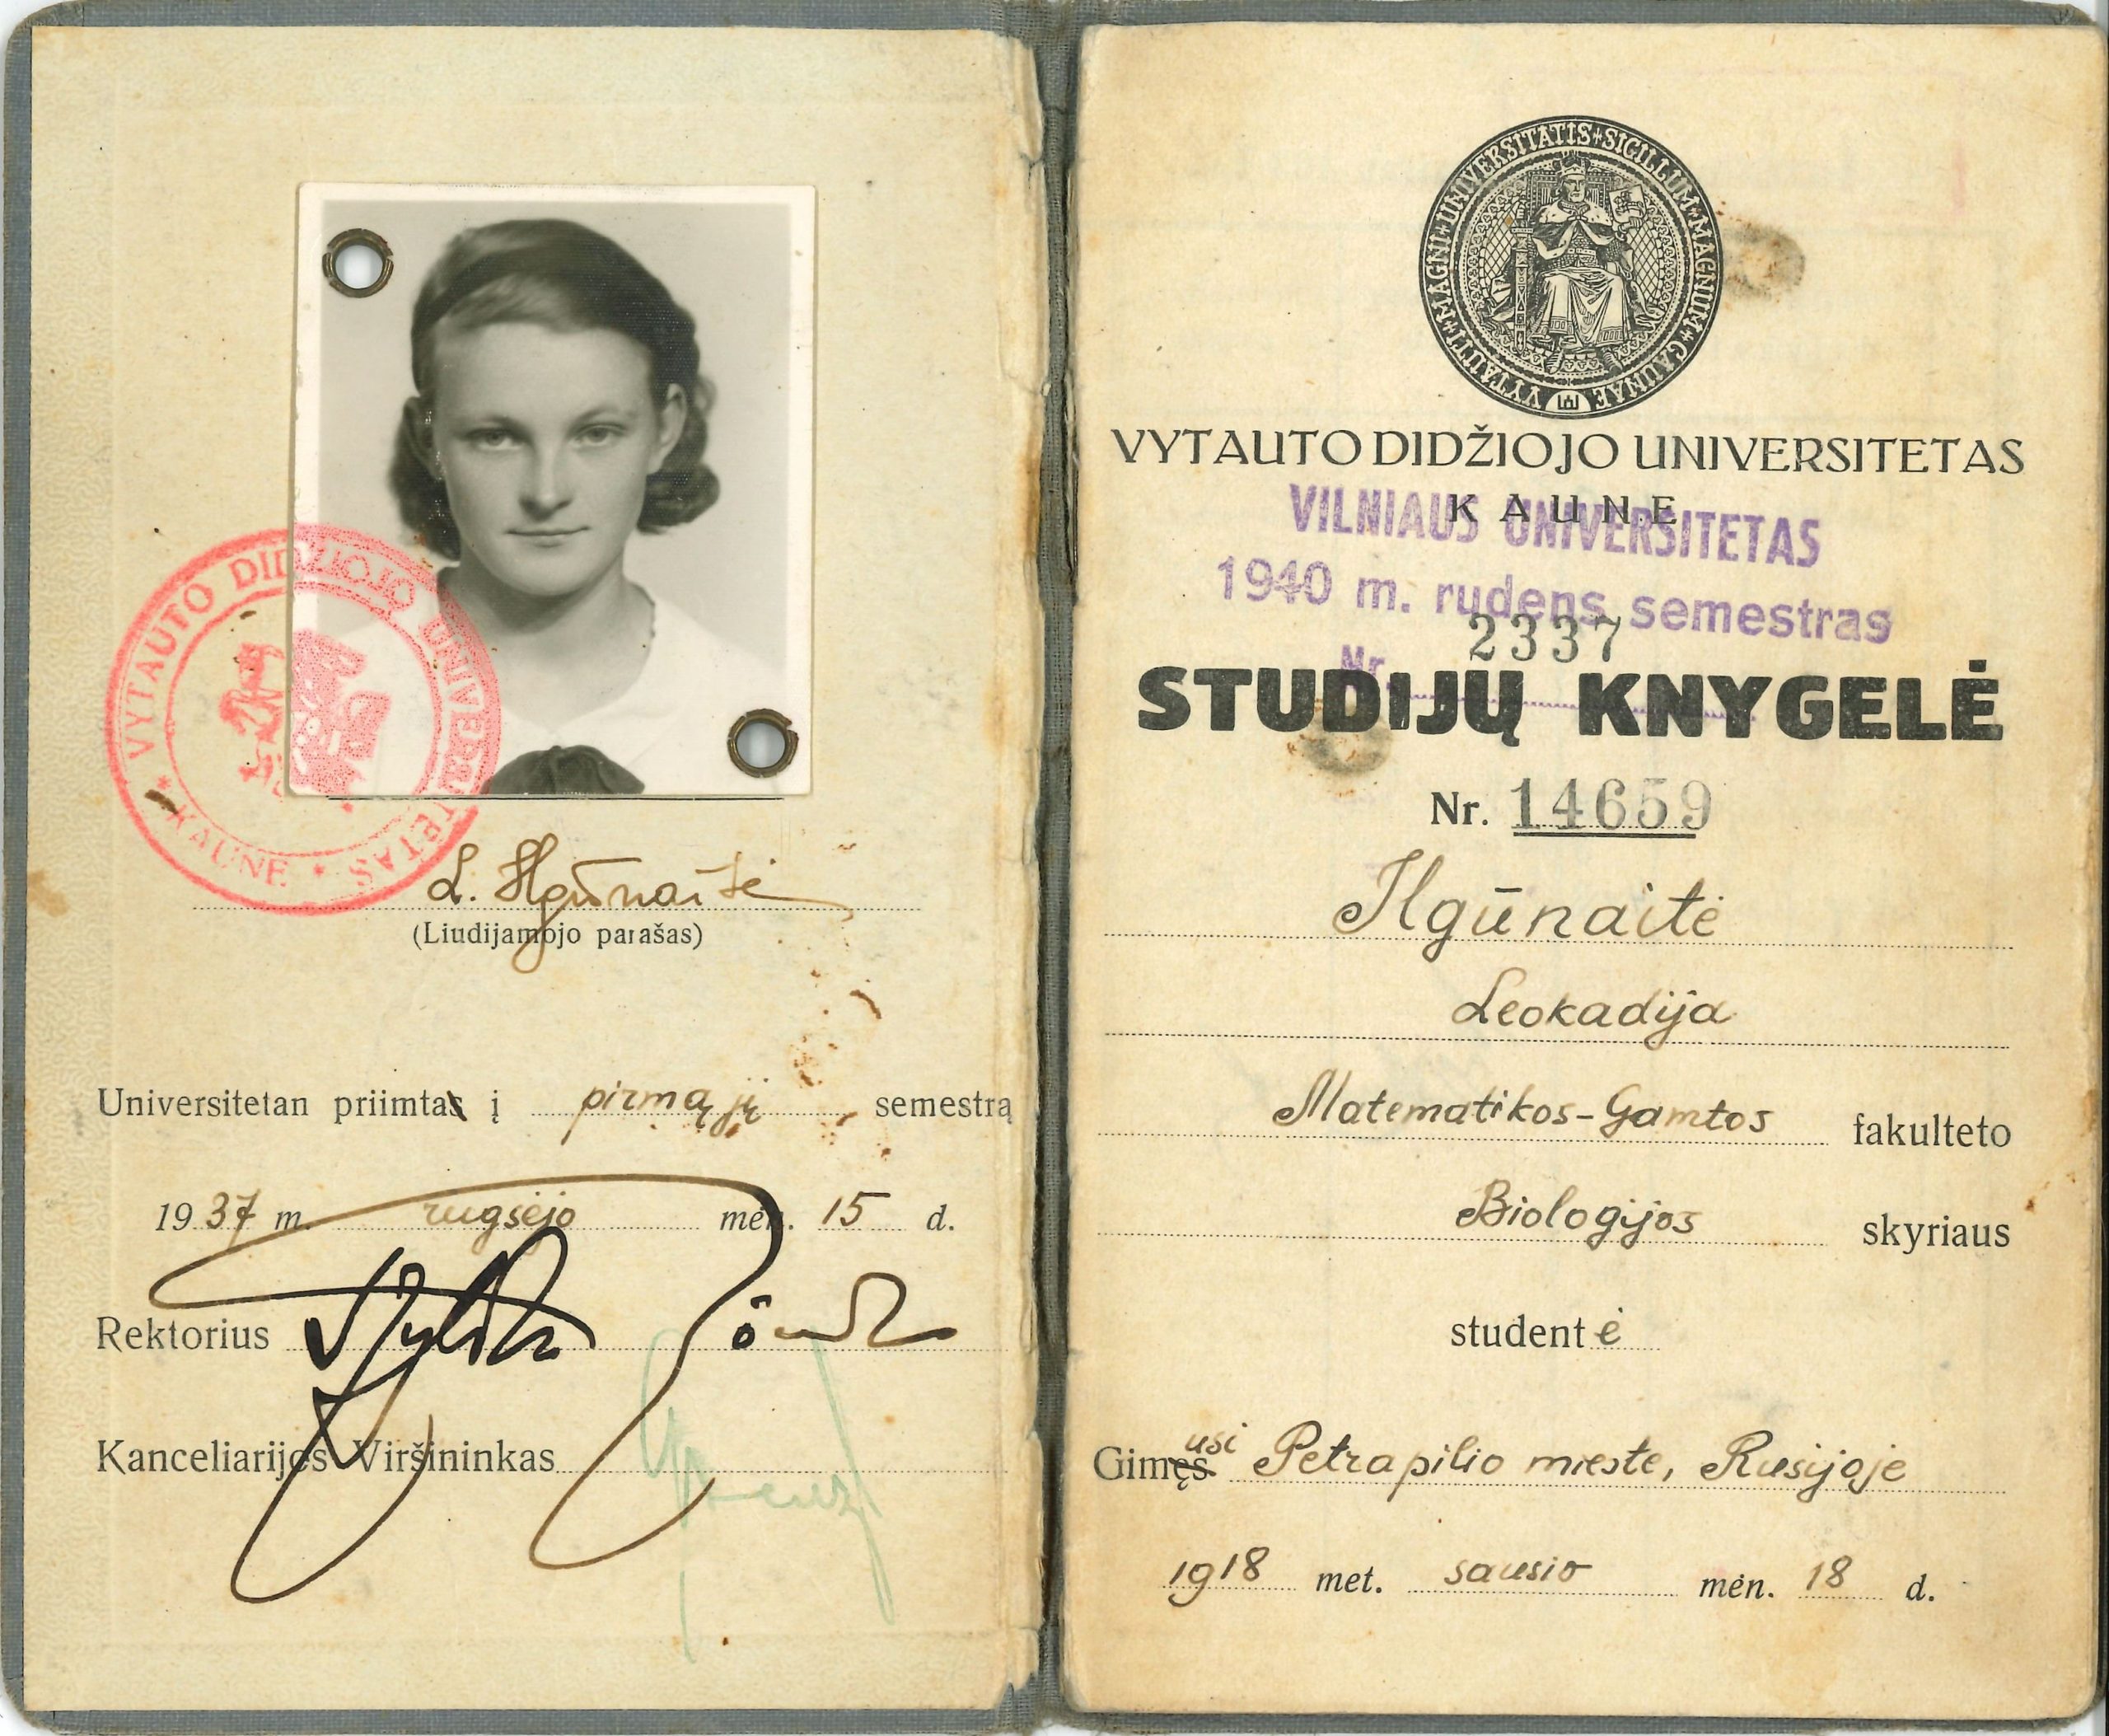 VYTAUTO DIDŽIOJO UNIVERSITETAS
* KAUNE *
L. Ilgūnaitė
(Liudijamojo parašas)
Universitetan priimta į pirmąjį semestrą
1937 m. rugsėjo mėn. 15 d.
Rektorius
Kanceliarijos Viršininkas
VYTAUTI+MAGNI+UNIVERSITATIS+SIGILLUM+MAGNUM+CAUNAE
VYTAUTO DIDŽIOJO UNIVERSITETAS
KAUNE
VILNIAUS UNIVERSITETAS
1940 m. rudens semestras
Nr. 2337
STUDIJŲ KNYGELĖ
Nr. 14659
Ilgūnaitė
Leokadija
Matematikos-Gamtos fakulteto
Biologijos skyriaus
studentė
Gimęs usi Petrapilio mieste, Rusijoje
1918 met. sausio mėn. 18 d.